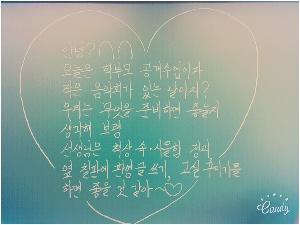 안녕? ^^
오늘은 학부모 공개수업이라
작은 음악회가 있는 날이지?
우리는 무엇을 준비하면 좋을지
생각해 보렴
선생님은 책상 속·사물함 정리
옆 칠판에 환영 글 쓰기, 교실 꾸미기를
하면 좋을 것 같아~♡
Candy